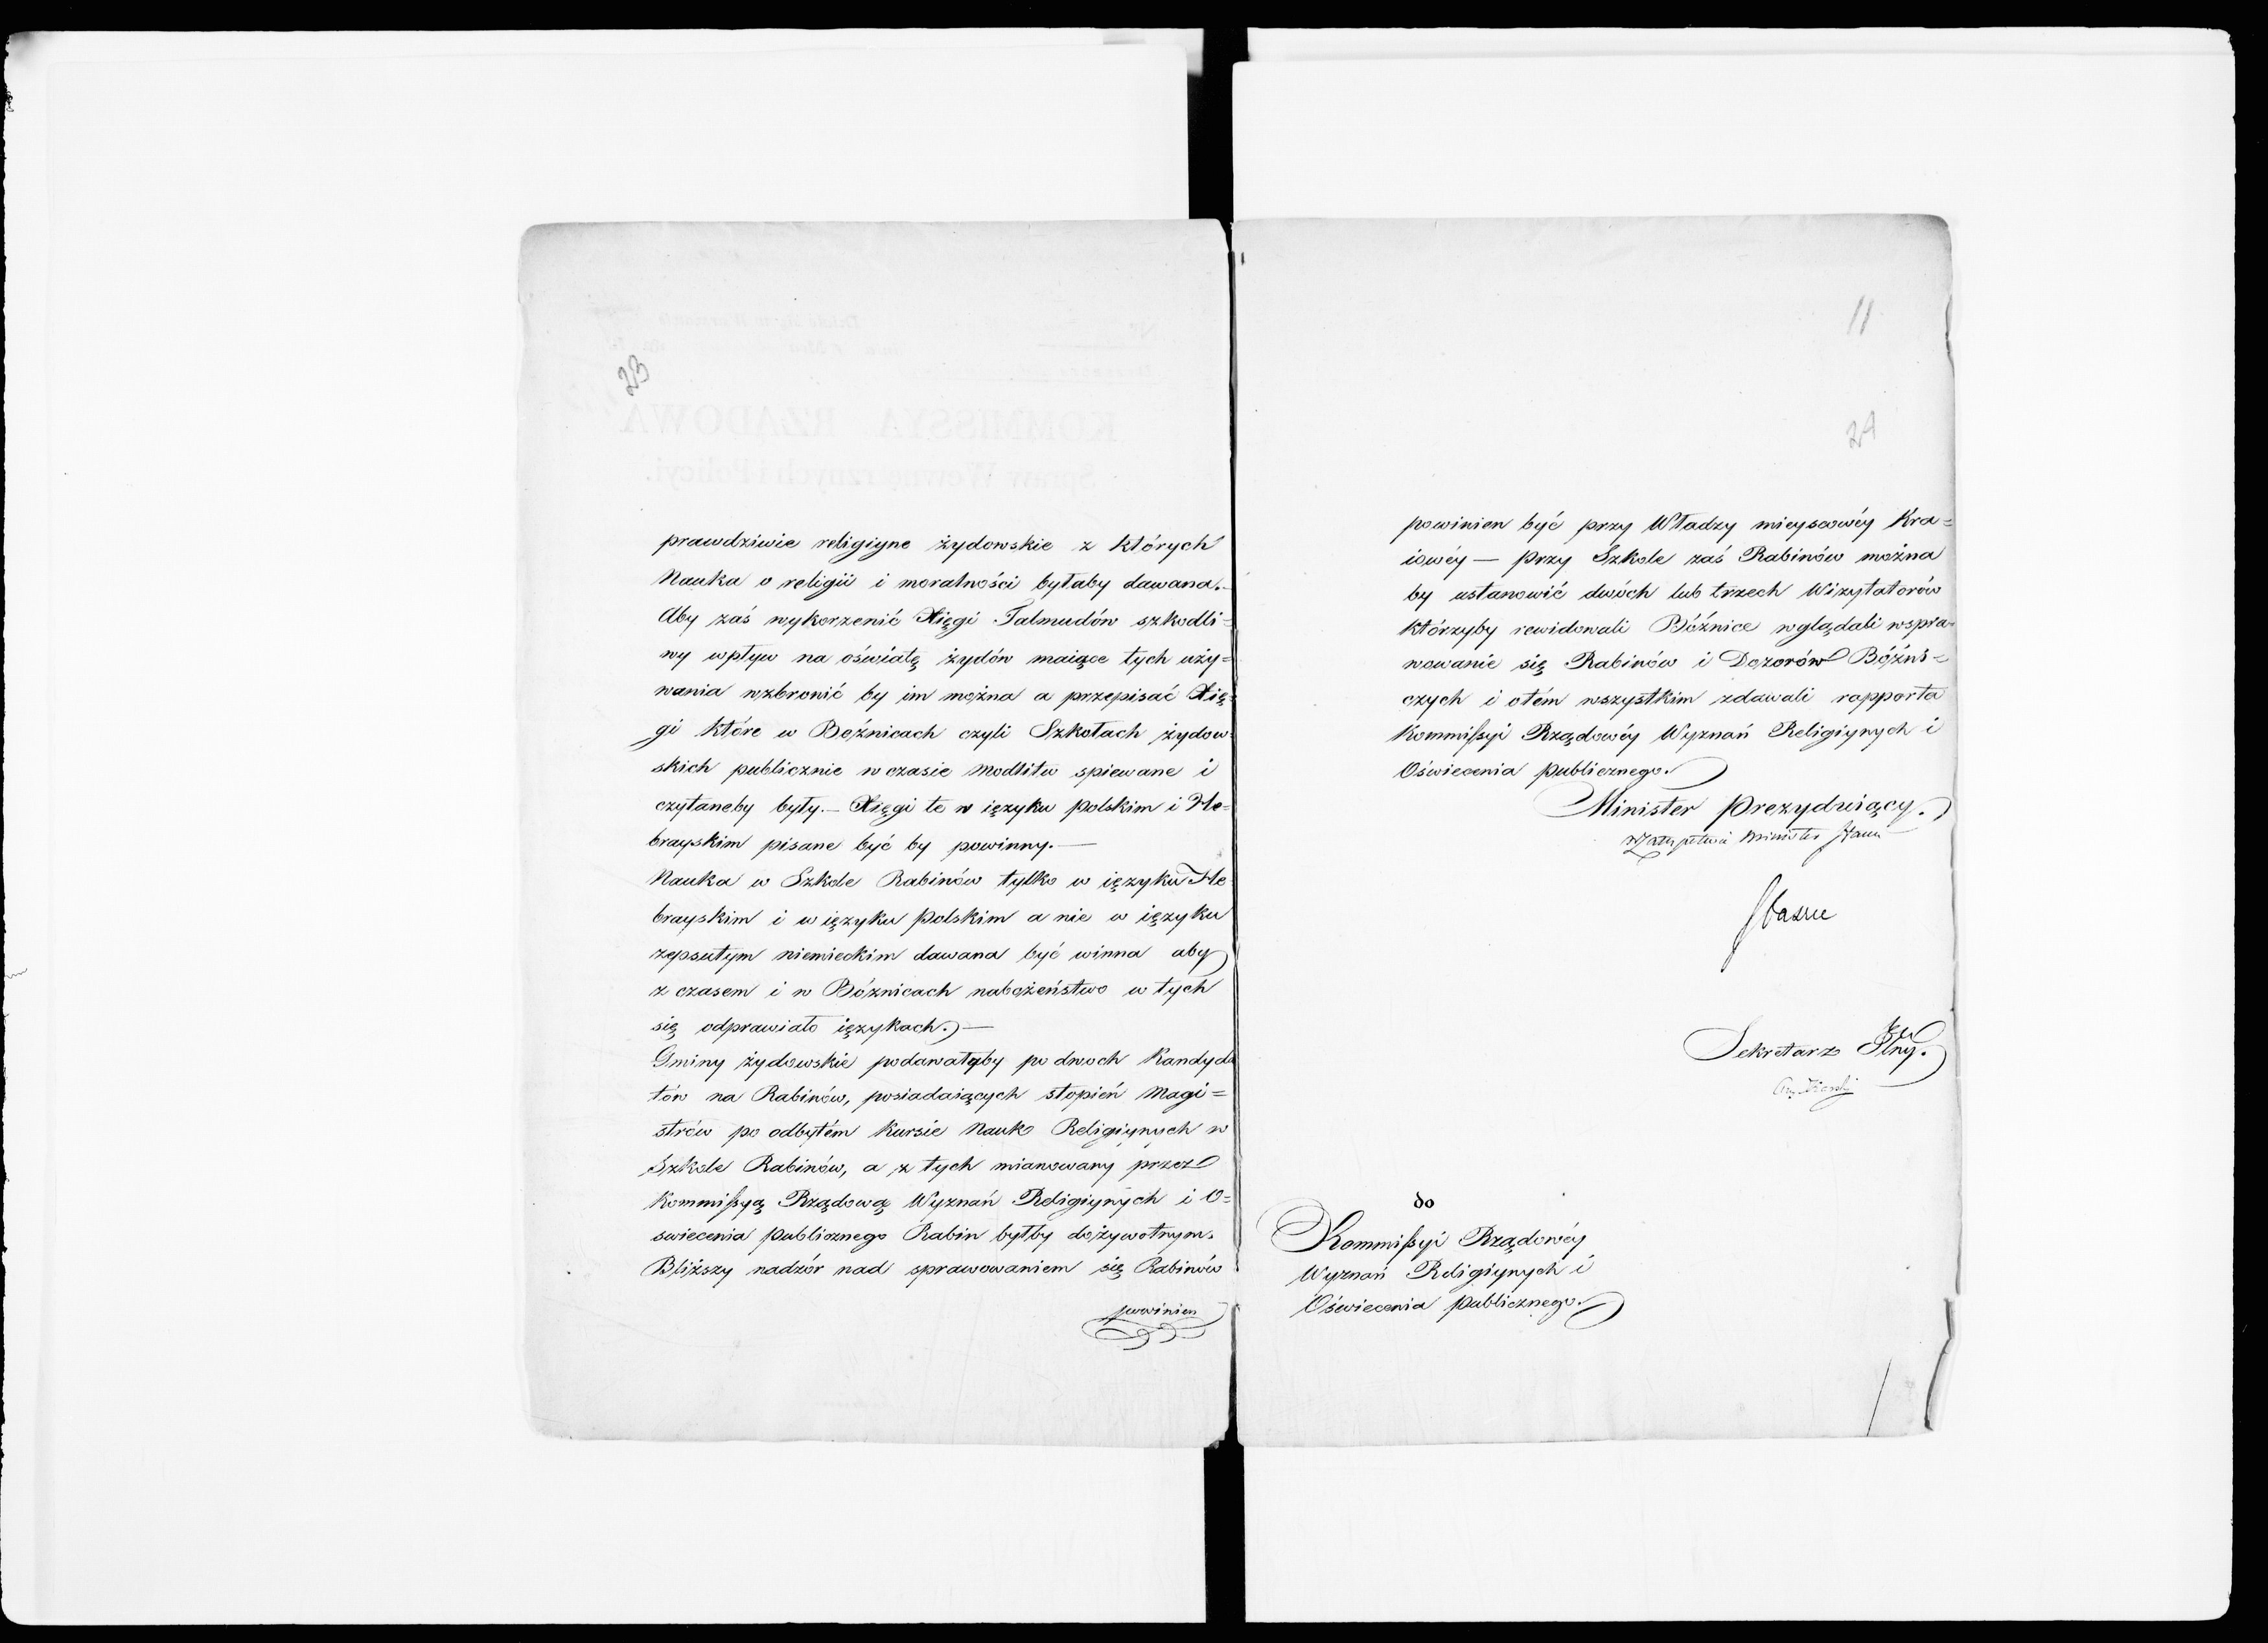 23
prawdziwie religiyne żydowskie z których
Nauka o religii i moralności byłaby dawana.—
Aby zaś wykorzenić Xięgi Talmudów szkodli=
wy wpływ na oświatę żydów maiące tych uży=
wania wzbronić by im można a przepisać Xię=
gi które w Bóżnicach czyli Szkołach żydow=
skich publicznie w czasie Modlitw spiewane i
czytaneby były.— Xięgi te w ięzyku polskim i He=
brayskim pisane być by powinny.—
Nauka w Szkole Rabinów tylko w ięzyku He=
brayskim i w ięzyku polskim a nie w ięzyku
zepsutym niemieckim dawana być winna aby
z czasem i w Bóżnicach nabożeństwo w tych
się odprawiało ięzykach.—
Gminy żydowskie podawałyby po dwoch Kandyda
tów na Rabinów, posiadaiących stopień Magi=
strów po odbytém Kursie Nauk Religiynych w
Szkole Rabinów, a z tych mianowany przez
Kommissyą Rządową Wyznań Religiynych i O=
swiecenia publicznego Rabin byłby dożywotnym.
Bliższy nadzór nad sprawowaniem się Rabinów
powinien
11
24
powinien być przy Władzy mieyscowéy Kra=
iowéy — przy Szkole zaś Rabinów można
by ustanowić dwóch lub trzech Wizytatorów
którzyby rewidowali Bóżnice wglądali w spra=
wowanie się Rabinów i Dozorów Bóźni=
czych i otém wszystkim zdawali rapporta
Kommissyi Rządowéy Wyznań Religiynych i
Oświecenia publicznego.
Minister Prezyduiący.
w Zastępstwie Minister Stanu
Sekretarz Jlny.
do
Kommissyi Rządowéy
Wyznań Religiynych i
Oświecenia publicznego.